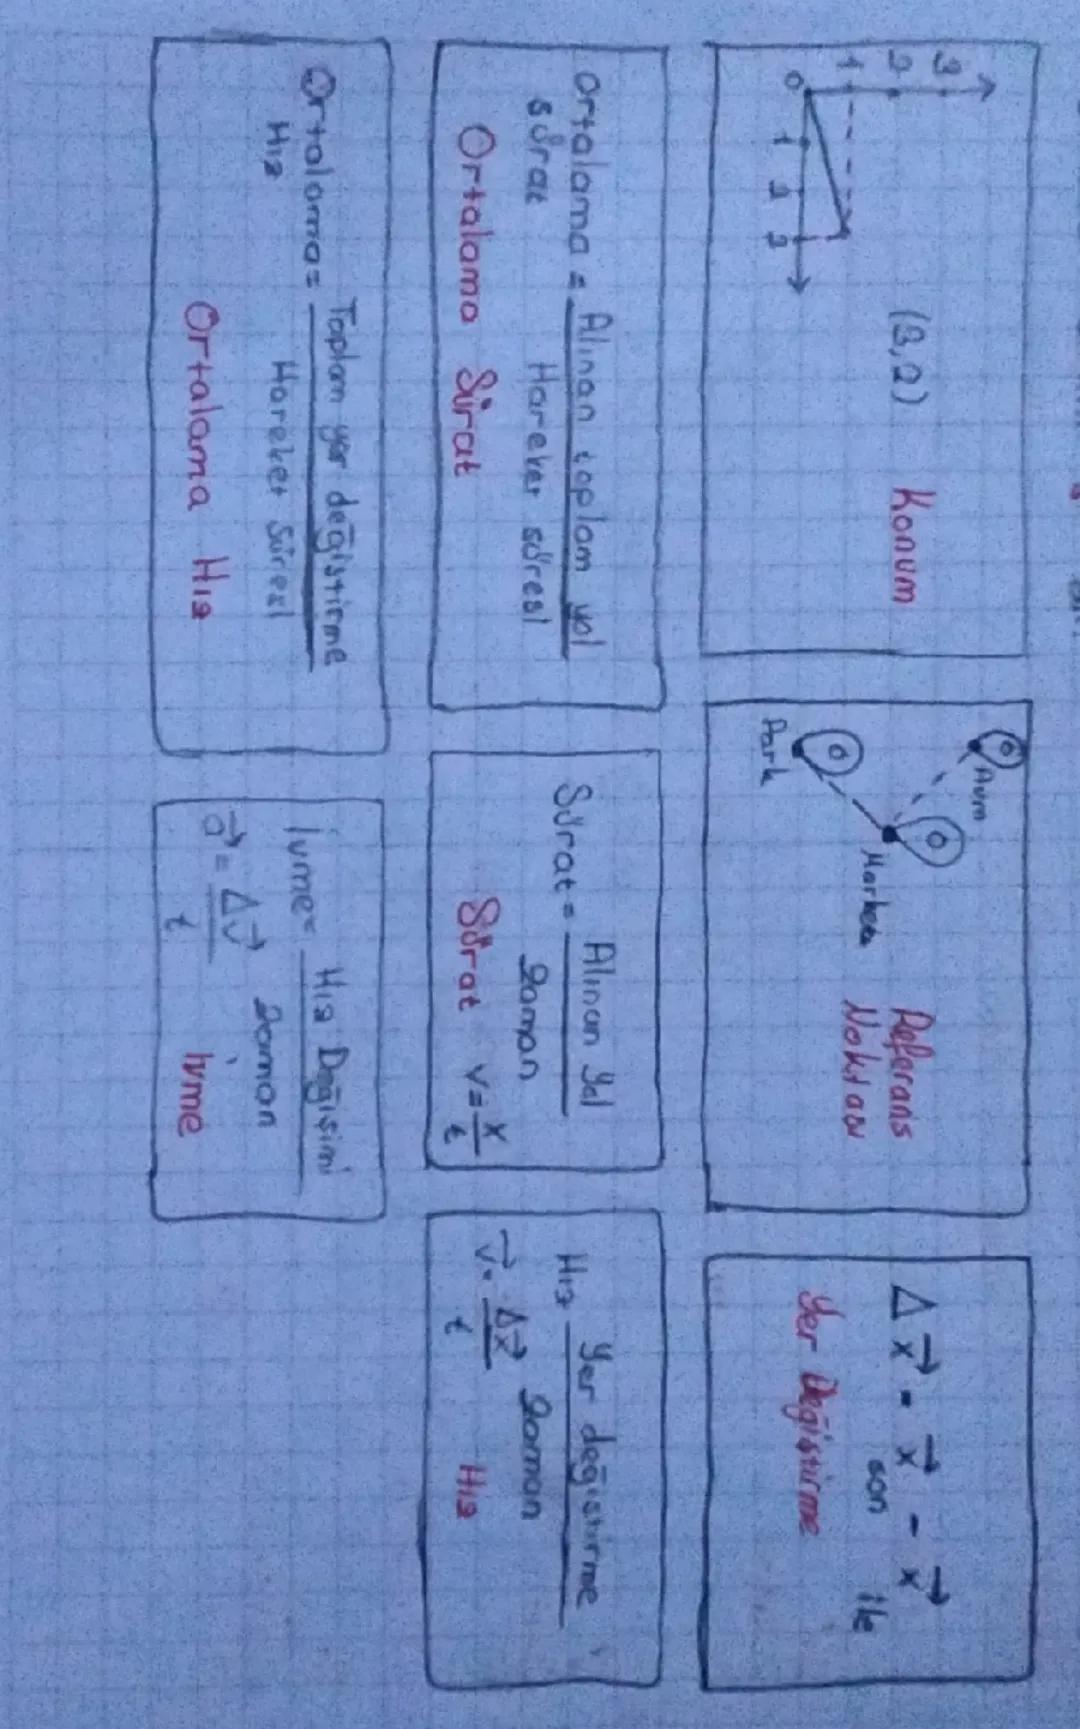 3
2
1
0
1 2 3
(3,2) Konum
Avm
Park
Merkez
Referans
Noktası
Δx = x son - x ilk
Yer Değiştirme
Ortalama sürat = Alınan toplam yol
Hareket süresi
Ortalama Sürat
Sürat = Alınan yol
zaman
Sürat v = x
t
Hız Yer değiştirme
zaman
v = Δx
t
Hız
Ortalama Hız = Toplam yer değiştirme
Hareket Süresi
Ortalama Hız
İvme = Hız Değişimi
zaman
a = Δv
t
İvme